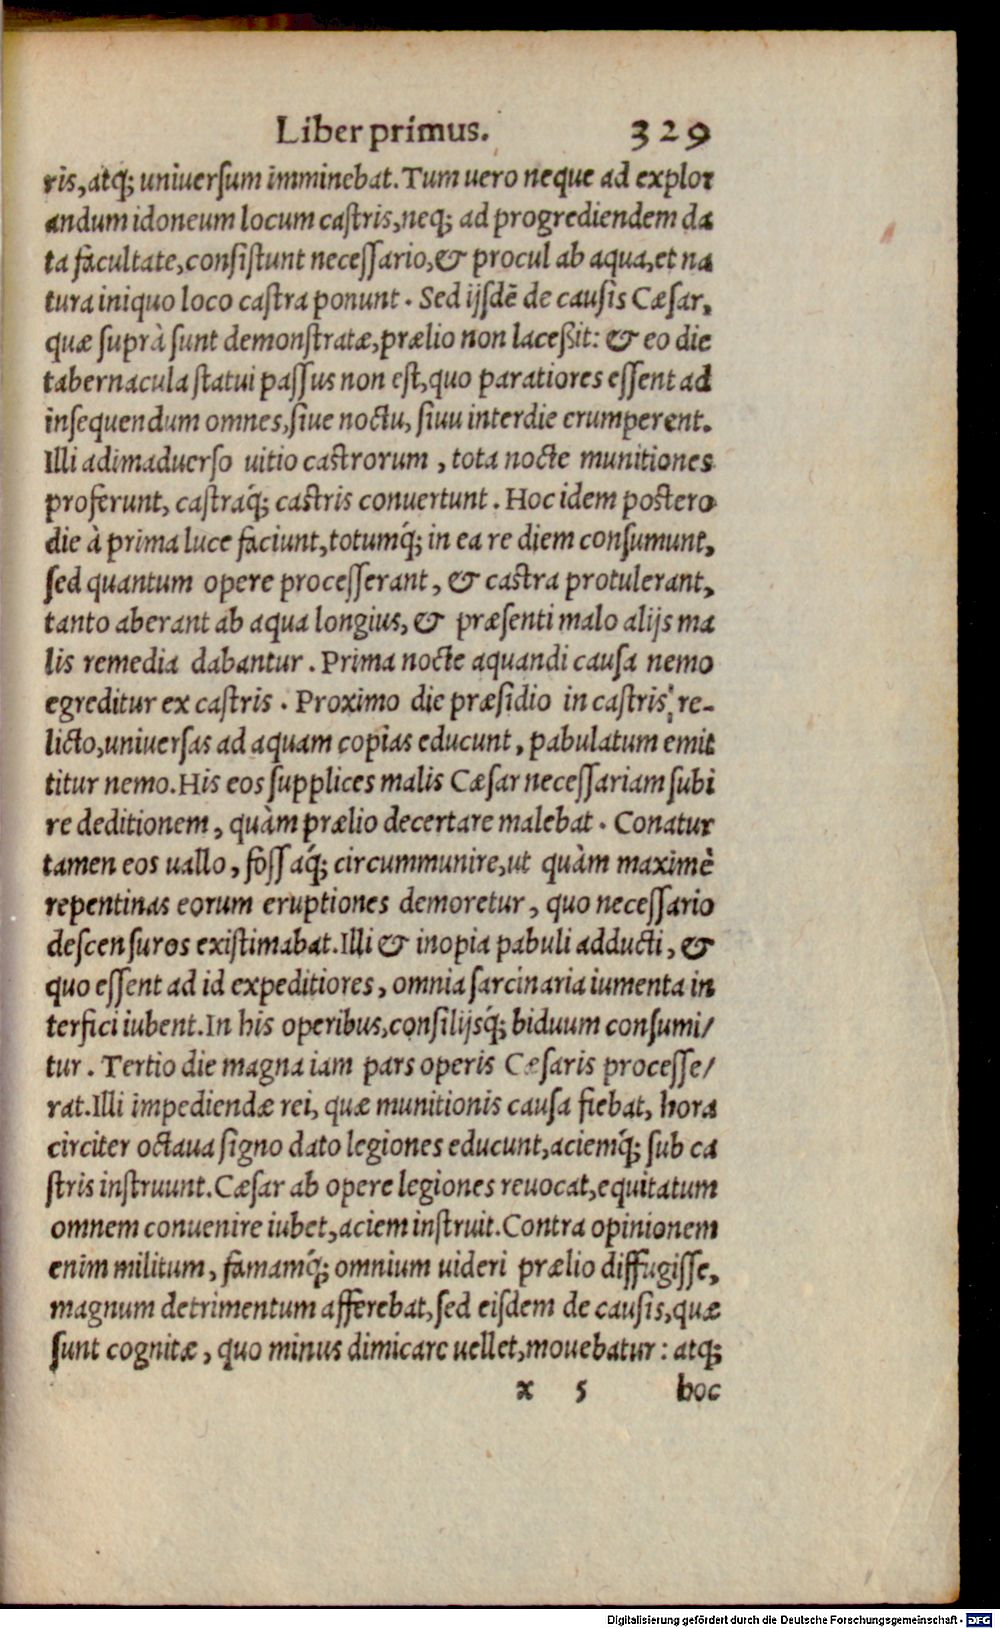 Liber primus. 329
ris, atq; uniuersum imminebat. Tum uero neque ad explor
andum idoneum locum castris, neq; ad progrediendem da
ta facultate, consistunt necessario, & procul ab aqua, et na
tura iniquo loco castra ponunt. Sed ijsdē de causis Cæsar,
quæ suprà sunt demonstratæ, prælio non laceßit: & eo die
tabernacula statui passus non est, quo paratiores essent ad
insequendum omnes, siue noctu, siuu interdie erumperent.
Illi adimaduerso uitio castrorum, tota nocte munitiones
proferunt, castraq́; castris conuertunt. Hoc idem postero
die à prima luce faciunt, totumq́; in ea re diem consumunt,
sed quantum opere processerant, & castra protulerant,
tanto aberant ab aqua longius, & præsenti malo alijs ma
lis remedia dabantur. Prima nocte aquandi causa nemo
egreditur ex castris. Proximo die præsidio in castris re-
licto, uniuersas ad aquam copias educunt, pabulatum emit
titur nemo. His eos supplices malis Cæsar necessariam subi
re deditionem, quàm prælio decertare malebat. Conatur
tamen eos uallo, fossaq́; circummunire, ut quàm maximè
repentinas eorum eruptiones demoretur, quo necessario
descensuros existimabat. Illi & inopia pabuli adducti, &
quo essent ad id expeditiores, omnia sarcinaria iumenta in
terfici iubent. In his operibus, consilijsq́; biduum consumi/
tur. Tertio die magna iam pars operis Cæsaris processe/
rat. Illi impediendæ rei, quæ munitionis causa fiebat, hora
circiter octaua signo dato legiones educunt, aciemq́; sub ca
stris instruunt. Cæsar ab opere legiones reuocat, equitatum
omnem conuenire iubet, aciem instruit. Contra opinionem
enim militum, famamq́; omnium uideri prælio diffugisse,
magnum detrimentum afferebat, sed eisdem de causis, quæ
sunt cognitæ, quo minus dimicare uellet, mouebatur: atq;
x 5 hoc
Digitalisierung gefördert durch die Deutsche Forschungsgemeinschaft - DFG